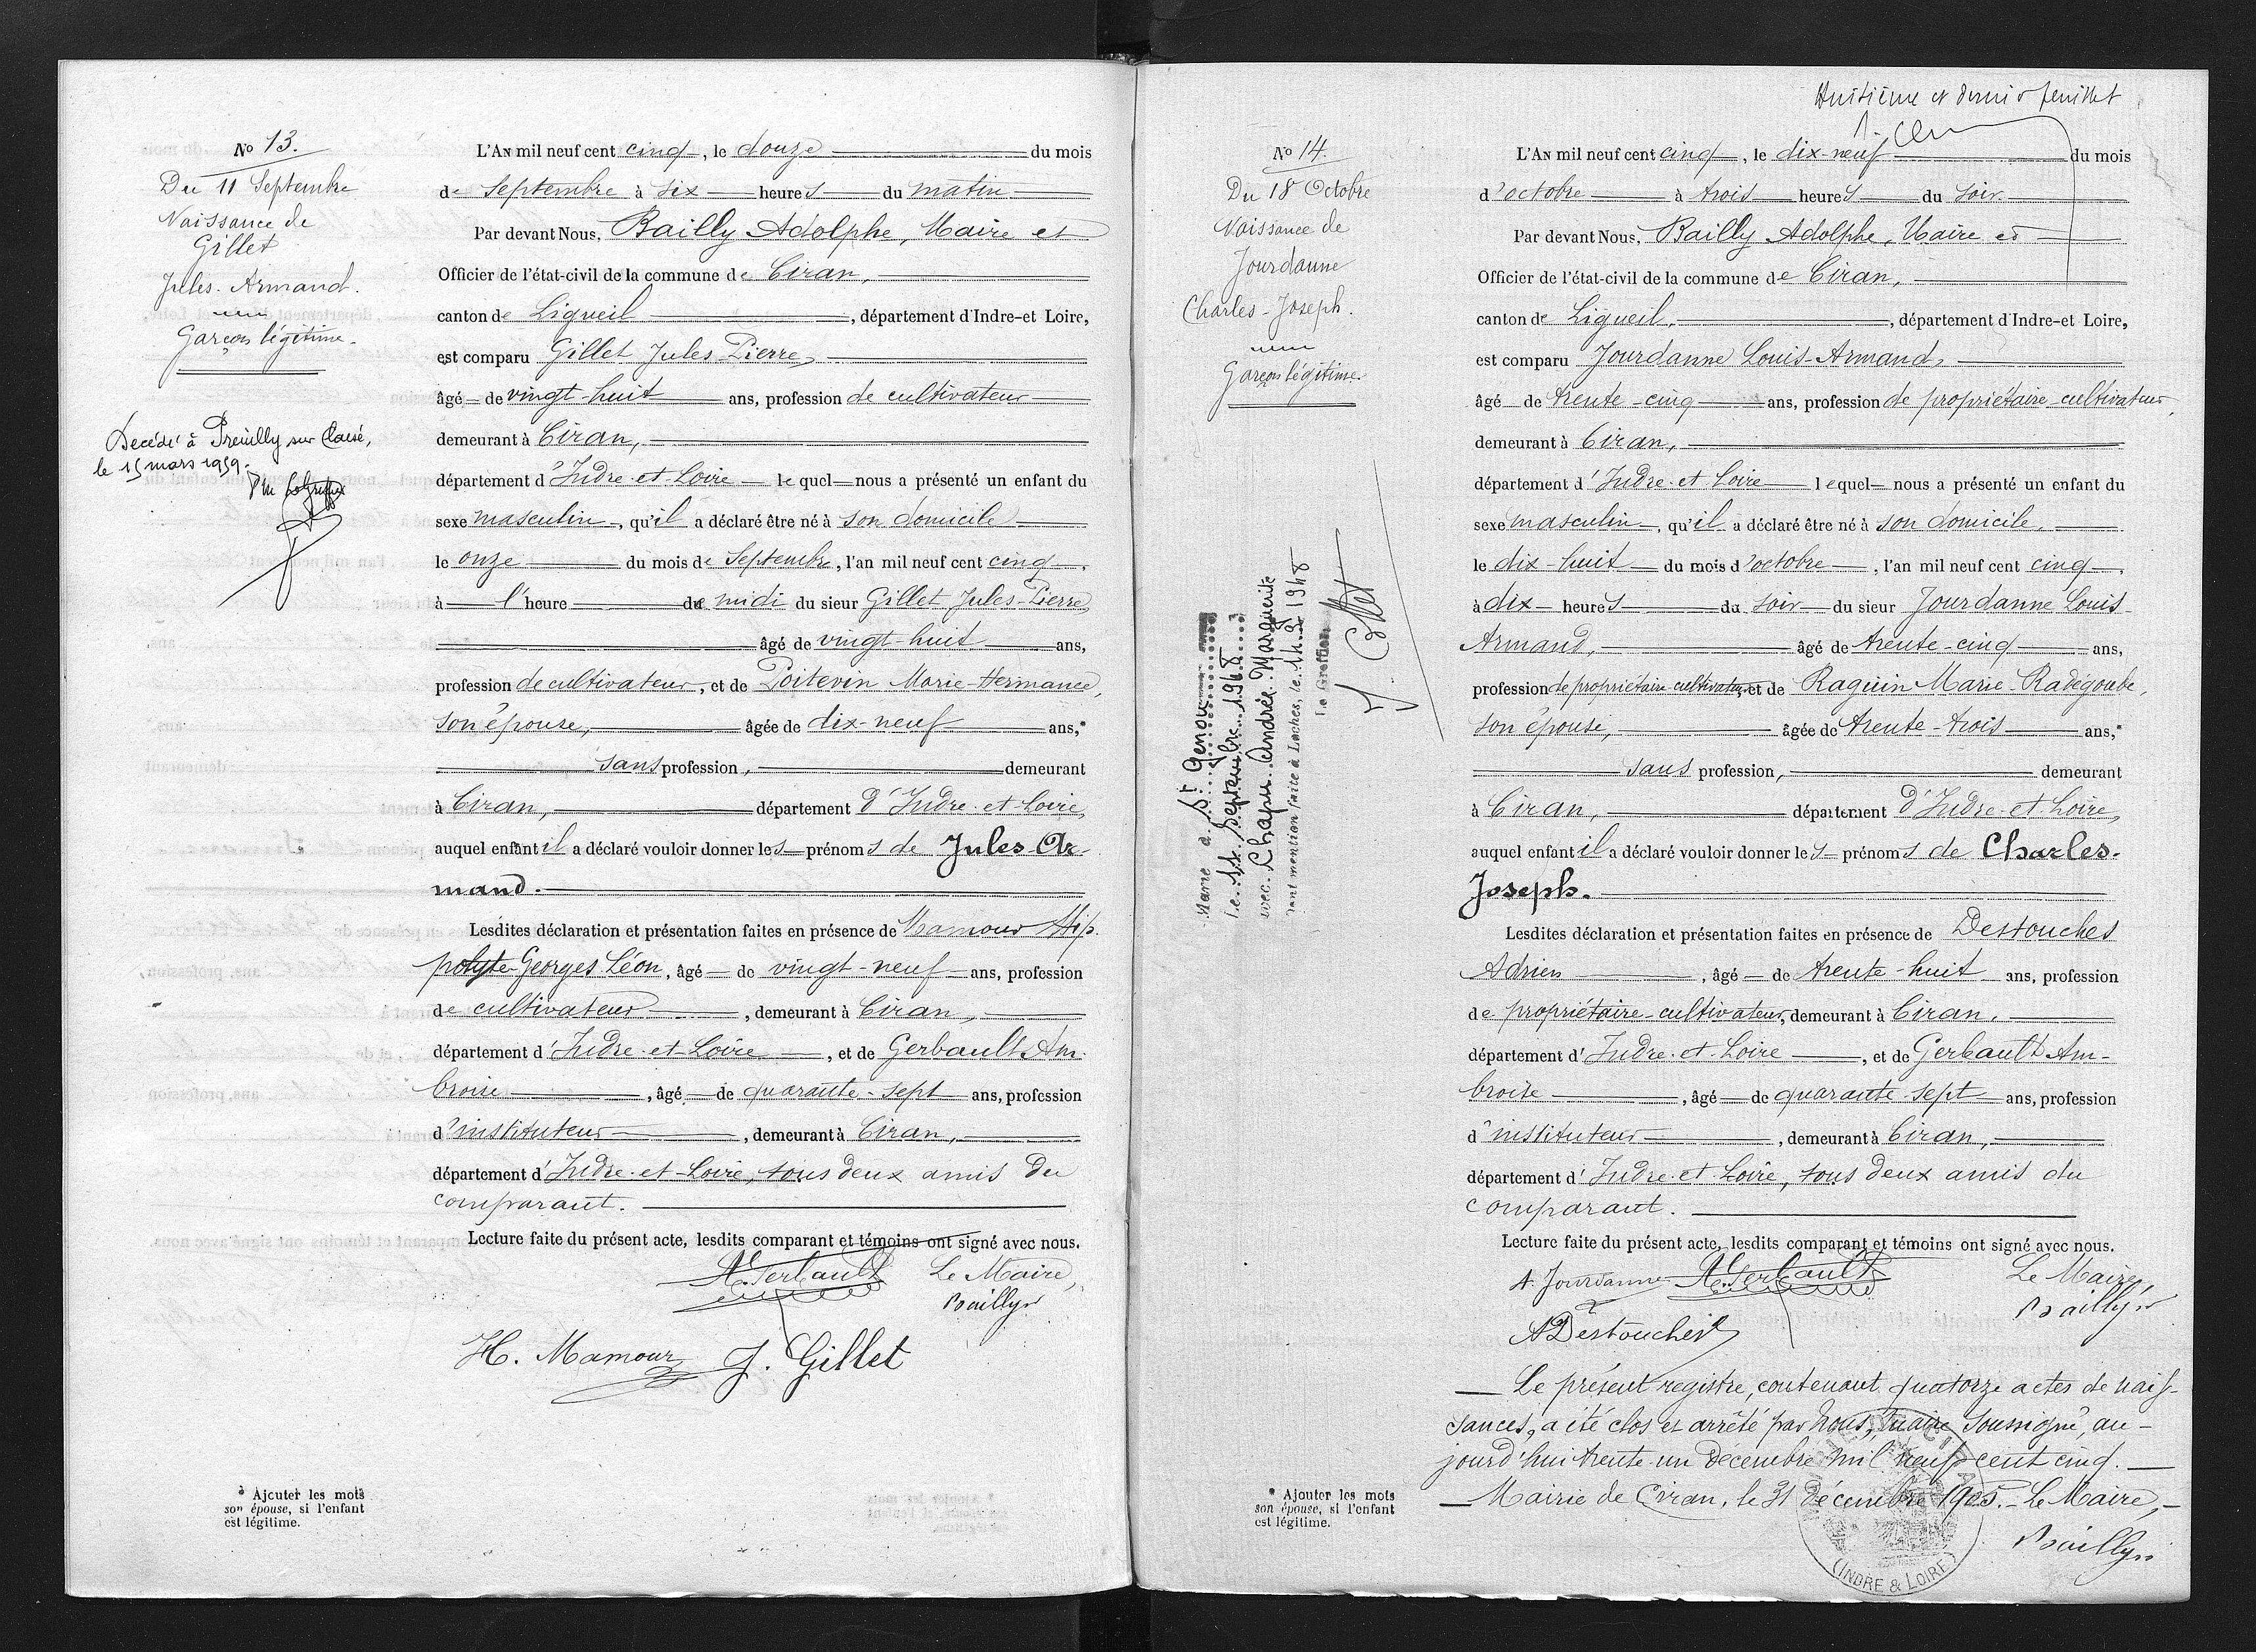 No 13.
Du 11 Septembre
Naissance de
Gillet
Jules-Armand.
Garçon légitime.
Décédé à Preuilly sur Claise,
le 15 mars 1959.
L'AN mil neuf cent cinq, le douze du mois
de Septembre à six heures du matin
Par devant Nous, Bailly Adolphe, Maire et
Officier de l'état-civil de la commune de Ciran,
canton de Ligueil, département d'Indre-et Loire,
est comparu Gillet Jules Pierre,
âgé de vingt-huit ans, profession de cultivateur
demeurant à Ciran,
département d'Indre-et-Loire lequel nous a présenté un enfant du
sexe masculin, qu'il a déclaré être né à son domicile
le onze du mois de Septembre, l'an mil neuf cent cinq,
à l'heure de midi du sieur Gillet Jules-Pierre,
âgé de vingt-huit ans,
profession de cultivateur, et de Poitevin Marie-Hermance,
son épouse, âgée de dix-neuf ans,*
sans profession, demeurant
à Ciran, département d'Indre-et-Loire,
auquel enfant il a déclaré vouloir donner les prénoms de Jules-Ar-
mand.
Lesdites déclaration et présentation faites en présence de Mamour Hip-
polyte Georges Léon, âgé de vingt-neuf ans, profession
de cultivateur, demeurant à Ciran,
département d'Indre-et-Loire, et de Gerbault Am-
broise, âgé de quarante-sept ans, profession
d'instituteur, demeurant à Ciran,
département d'Indre-et-Loire, tous deux amis du
comparant.
Lecture faite du présent acte, lesdits comparant et témoins ont signé avec nous.
A. Gerbault Le Maire,
Bailly
H. Mamour J. Gillet
* Ajouter les mots
son épouse, si l'enfant
est légitime.
Huitième et dernier feuillet
No 14.
Du 18 Octobre
Naissance de
Jourdanne
Charles-Joseph.
Garçon légitime.
Marié à St Genou
Le 11 septembre 1948
avec Chapu Andrée Marguerite
dont mention faite à Loches, le 14.9.1948
Le Greffier,
L'AN mil neuf cent cinq, le dix-neuf du mois
d'octobre à trois heures du soir.
Par devant Nous, Bailly Adolphe, Maire et
Officier de l'état-civil de la commune de Ciran,
canton de Ligueil, département d'Indre-et Loire,
est comparu Jourdanne Louis-Armand,
âgé de trente-cinq ans, profession de propriétaire-cultivateur,
demeurant à Ciran,
département d'Indre-et-Loire lequel nous a présenté un enfant du
sexe masculin, qu'il a déclaré être né à son domicile,
le dix-huit du mois d'octobre, l'an mil neuf cent cinq,
à dix heures du soir du sieur Jourdanne Louis-
Armand, âgé de trente-cinq ans,
profession de propriétaire cultivateur, et de Raguin Marie-Radégonde,
son épouse, âgée de trente-trois ans,*
sans profession, demeurant
à Ciran, département d'Indre-et-Loire,
auquel enfant il a déclaré vouloir donner les prénoms de Charles-
Joseph.
Lesdites déclaration et présentation faites en présence de Destouches
Adrien, âgé de trente-huit ans, profession
de propriétaire-cultivateur, demeurant à Ciran,
département d'Indre-et-Loire, et de Gerbault Am-
broise, âgé de quarante-sept ans, profession
d'instituteur, demeurant à Ciran,
département d'Indre-et-Loire, tous deux amis du
comparant.
Lecture faite du présent acte, lesdits comparant et témoins ont signé avec nous.
A. Jourdanne A. Gerbault Le Maire,
Bailly
A Destouches
Le présent registre, contenant quatorze actes de nais-
sances, a été clos et arrêté par nous, maire soussigné, au-
jourd'hui trente-un décembre mil neuf cent cinq.
Mairie de Ciran, le 31 décembre 1905. Le Maire,
Bailly
(INDRE & LOIRE)
* Ajouter les mots
son épouse, si l'enfant
est légitime.